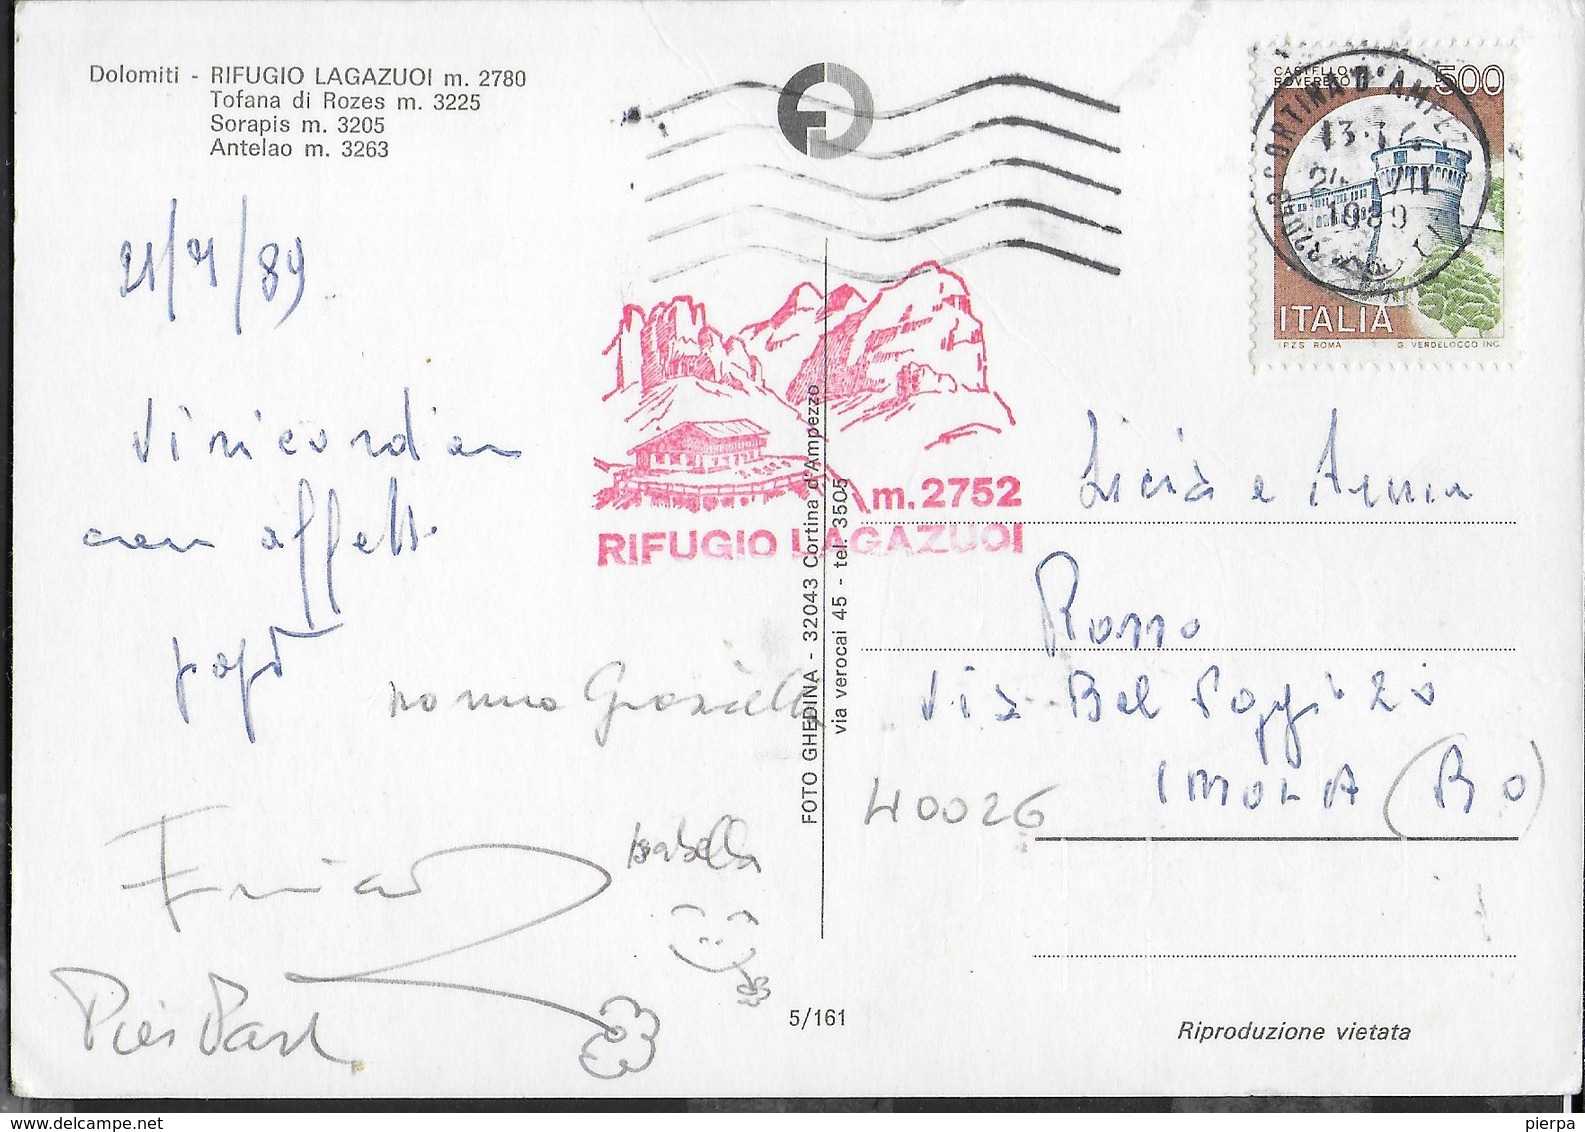 Dolomiti - RIFUGIO LAGAZUOI m. 2780
Tofana di Rozes m. 3225
Sorapis m. 3205
Antelao m. 3263
21/7/89
Vi ricordian
con affetto
papà
nonna Graziella
Isabella
Pier Paolo
m. 2752
RIFUGIO LAGAZUOI
FOTO GHEDINA - 32043 Cortina d'Ampezzo
via verocai 45 - tel. 3505
5/161
CASTELLO
ROVERETO
500
ITALIA
I.P.Z.S. ROMA
G. VERDELOCCO INC.
CORTINA D'AMPEZZO
1989
Licia e Anna
Romo
Via Bel Poggio 20
IMOLA (BO)
40026
Riproduzione vietata
pierpa